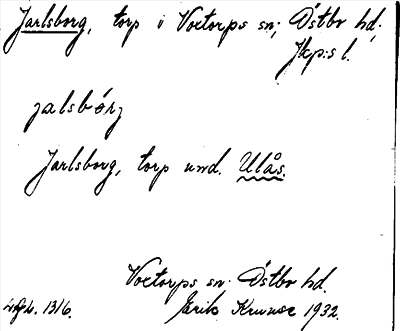 Jarlsborg, torp i Voxtorps sn; Östbo hd.
Jkp:s l.
jalsbórj
Jarlsborg, torp und. Ulås.
Voxtorps sn. Östbo hd.
1316. Erik Kruuse 1932.